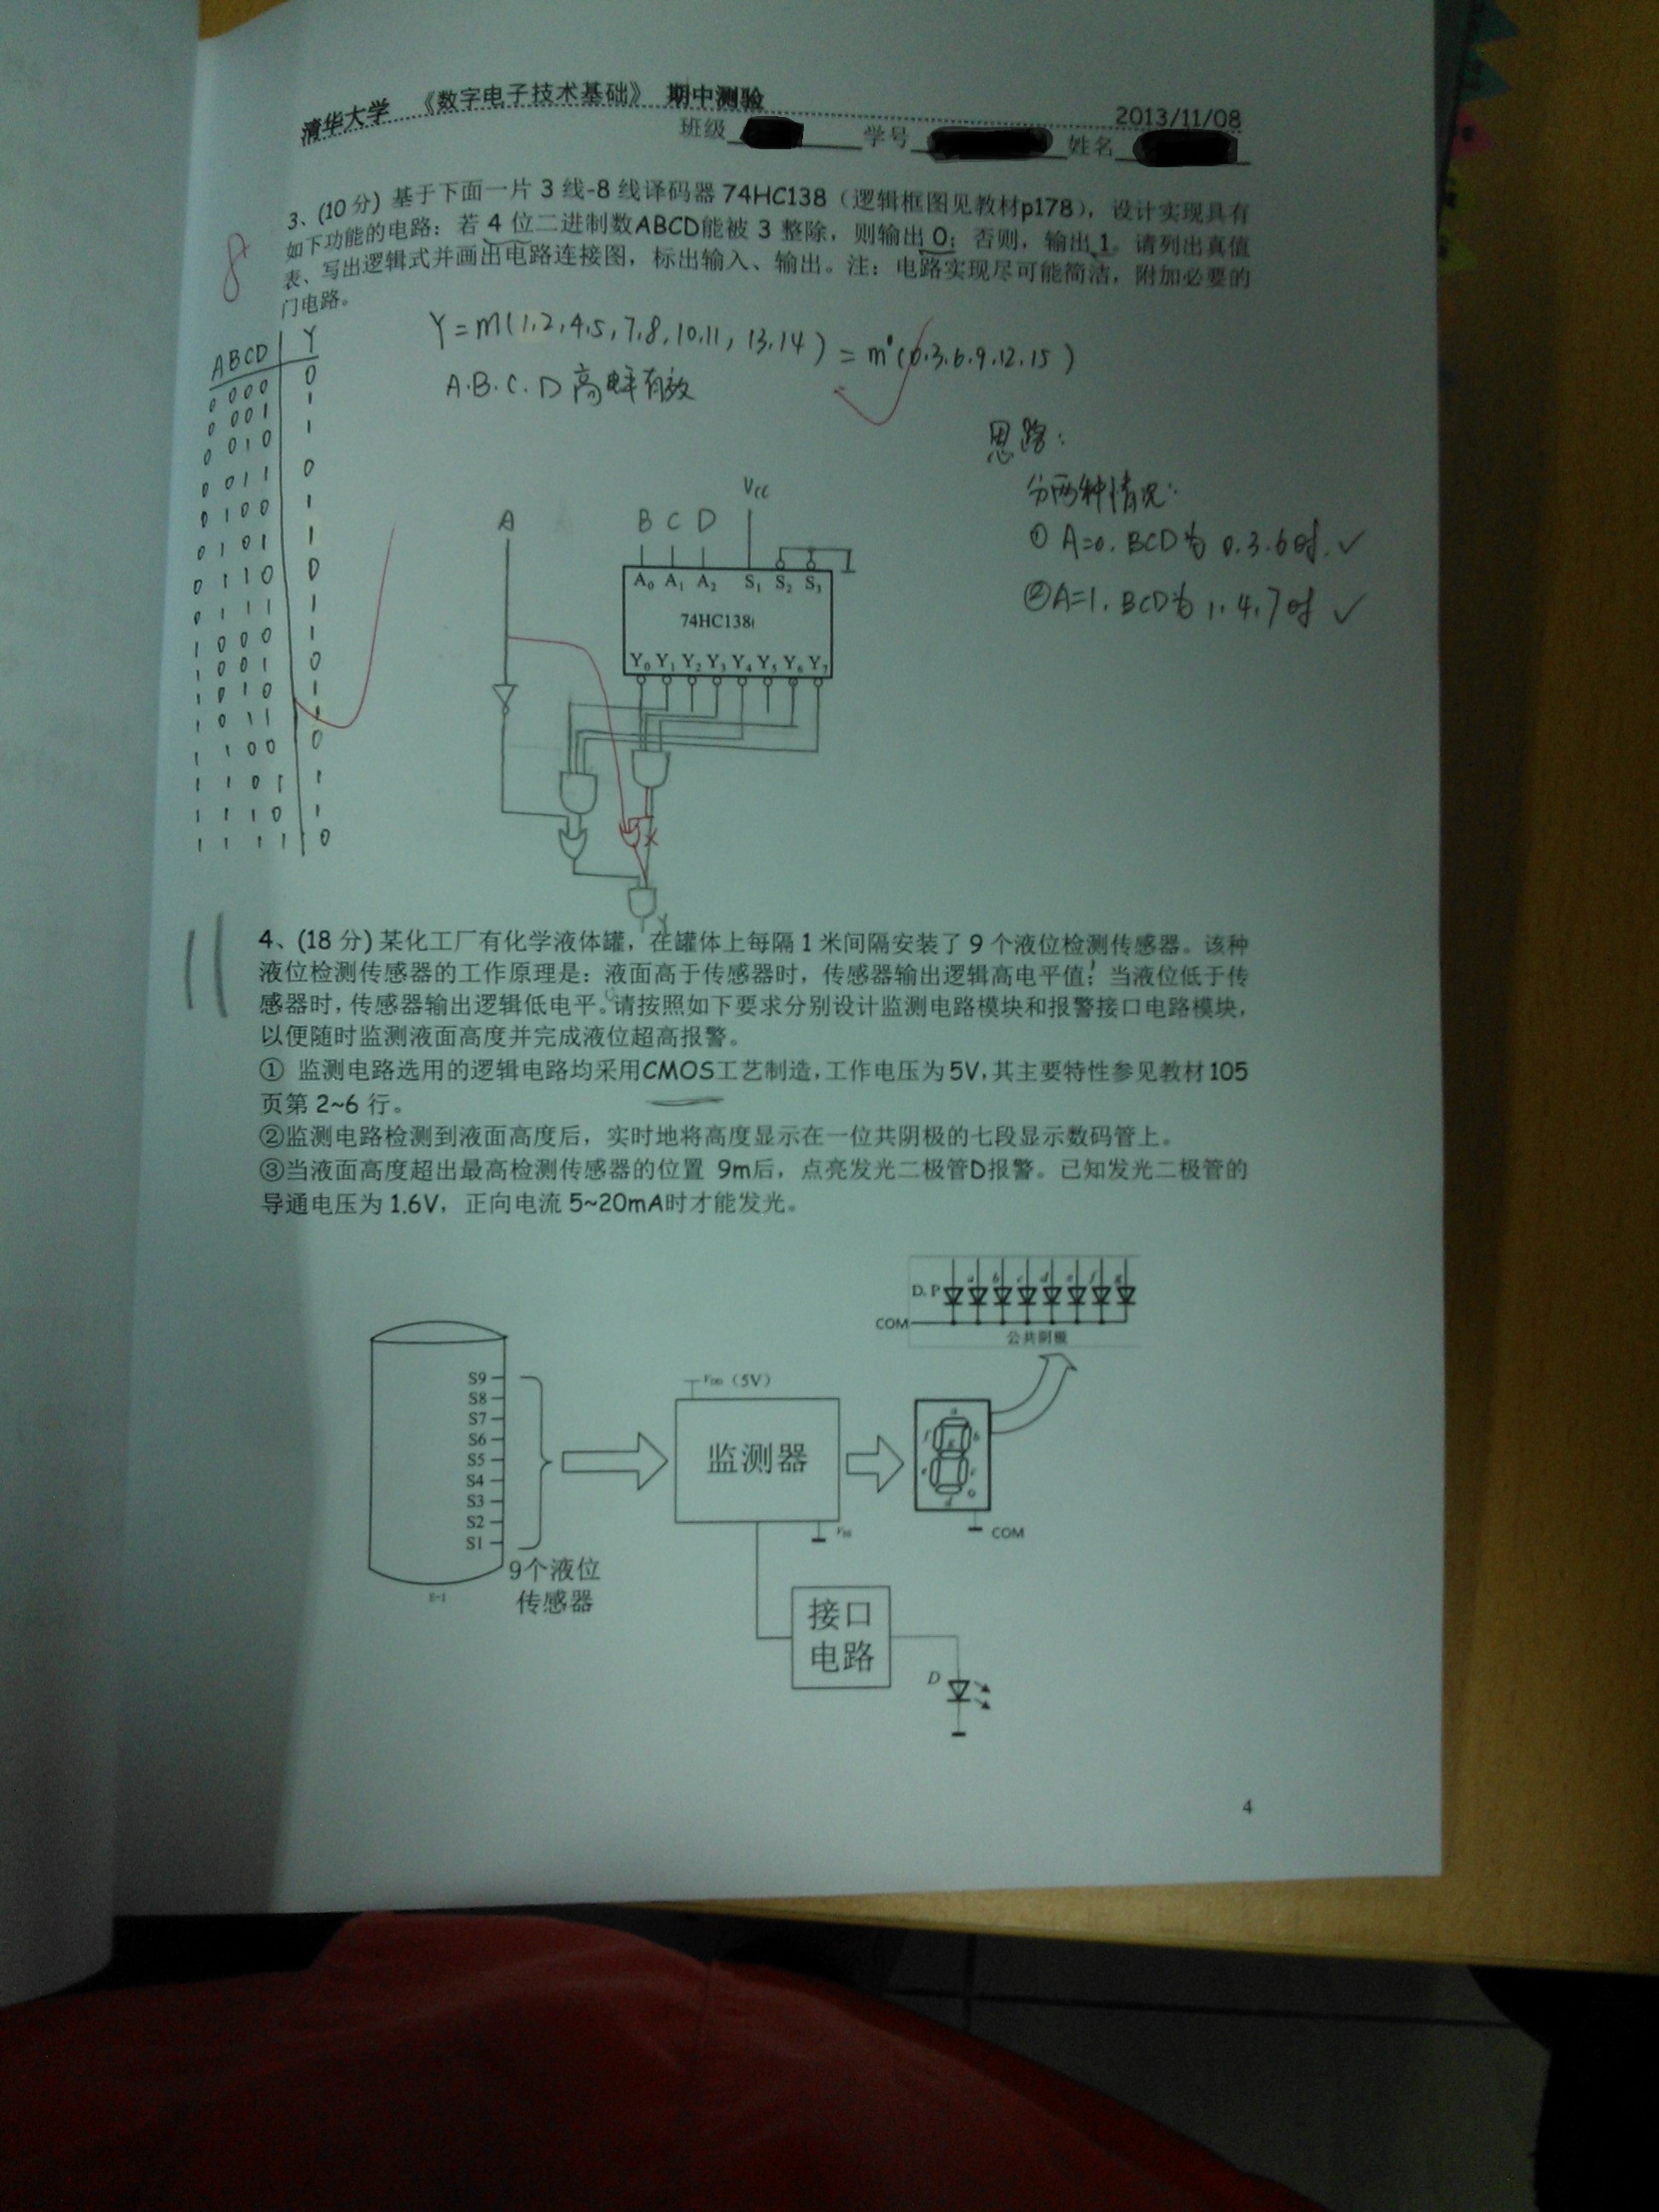 清华大学 《数字电子技术基础》 期中测验 2013/11/08
班级 学号 姓名
8
3、(10分) 基于下面一片 3 线-8 线译码器 74HC138（逻辑框图见教材p178），设计实现具有
如下功能的电路：若 4 位二进制数ABCD能被 3 整除，则输出 0；否则，输出 1。请列出真值
表、写出逻辑式并画出电路连接图，标出输入、输出。注：电路实现尽可能简洁，附加必要的
门电路。
Y=m(1,2,4,5,7,8,10,11,13,14) = m'(0.3.6.9.12.15)
A.B.C.D 高电平有效
ABCD Y
0000 0
0001 1
0010 1
0011 0
0100 1
0101 1
0110 0
0111 1
1000 1
1001 0
1010 1
1011 1
1100 0
1101 1
1110 1
1111 0
思路：
分两种情况：
① A=0. BCD为 0.3.6时. ✓
②A=1. BCD为 1.4.7时 ✓
VCC
A B C D
A0 A1 A2 S1 S2 S3
74HC138
Y0 Y1 Y2 Y3 Y4 Y5 Y6 Y7
Y
11
4、(18 分) 某化工厂有化学液体罐，在罐体上每隔 1 米间隔安装了 9 个液位检测传感器。该种
液位检测传感器的工作原理是：液面高于传感器时，传感器输出逻辑高电平值；当液位低于传
感器时，传感器输出逻辑低电平。请按照如下要求分别设计监测电路模块和报警接口电路模块，
以便随时监测液面高度并完成液位超高报警。
① 监测电路选用的逻辑电路均采用CMOS工艺制造，工作电压为5V，其主要特性参见教材 105
页第 2~6 行。
②监测电路检测到液面高度后，实时地将高度显示在一位共阴极的七段显示数码管上。
③当液面高度超出最高检测传感器的位置 9m后，点亮发光二极管D报警。已知发光二极管的
导通电压为 1.6V，正向电流 5~20mA时才能发光。
D.P a b c d e f g
COM
公共阴极
S9
S8
S7
S6
S5
S4
S3
S2
S1
9个液位
传感器
E-1
VDD（5V）
监测器
VSS
a
f g b
e c
d
COM
接口
电路
D
4